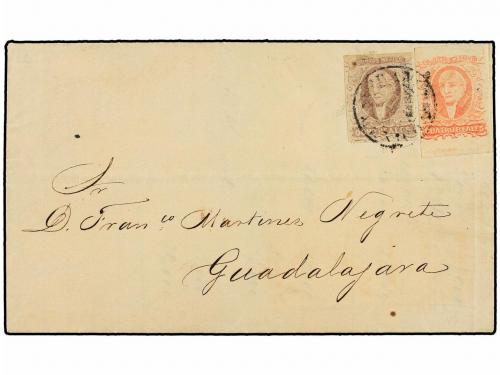 CUATRO REALES
Sr
D. Franco Martinez Negrete
Guadalajara